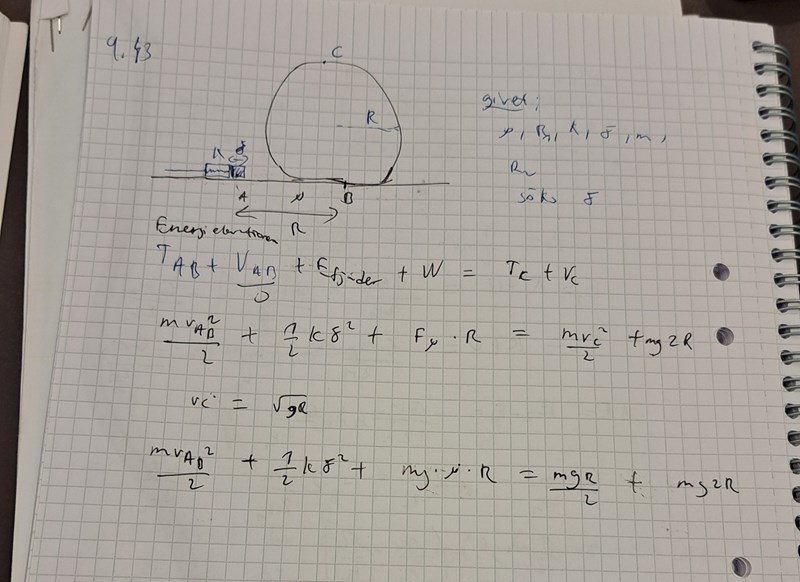 9.43
C
R
K δ
A μ B
R
given;
μ, R, K, δ, m,
söks δ
T_AB + V_AB + E_fjäder + W = T_C + V_C
0
mv_AB²/2 + 1/2 k δ² + F_μ · R = mv_C²/2 + mg2R
v_C = √gR
mv_AB²/2 + 1/2 k δ² + mg · μ · R = mgR/2 + mg2R